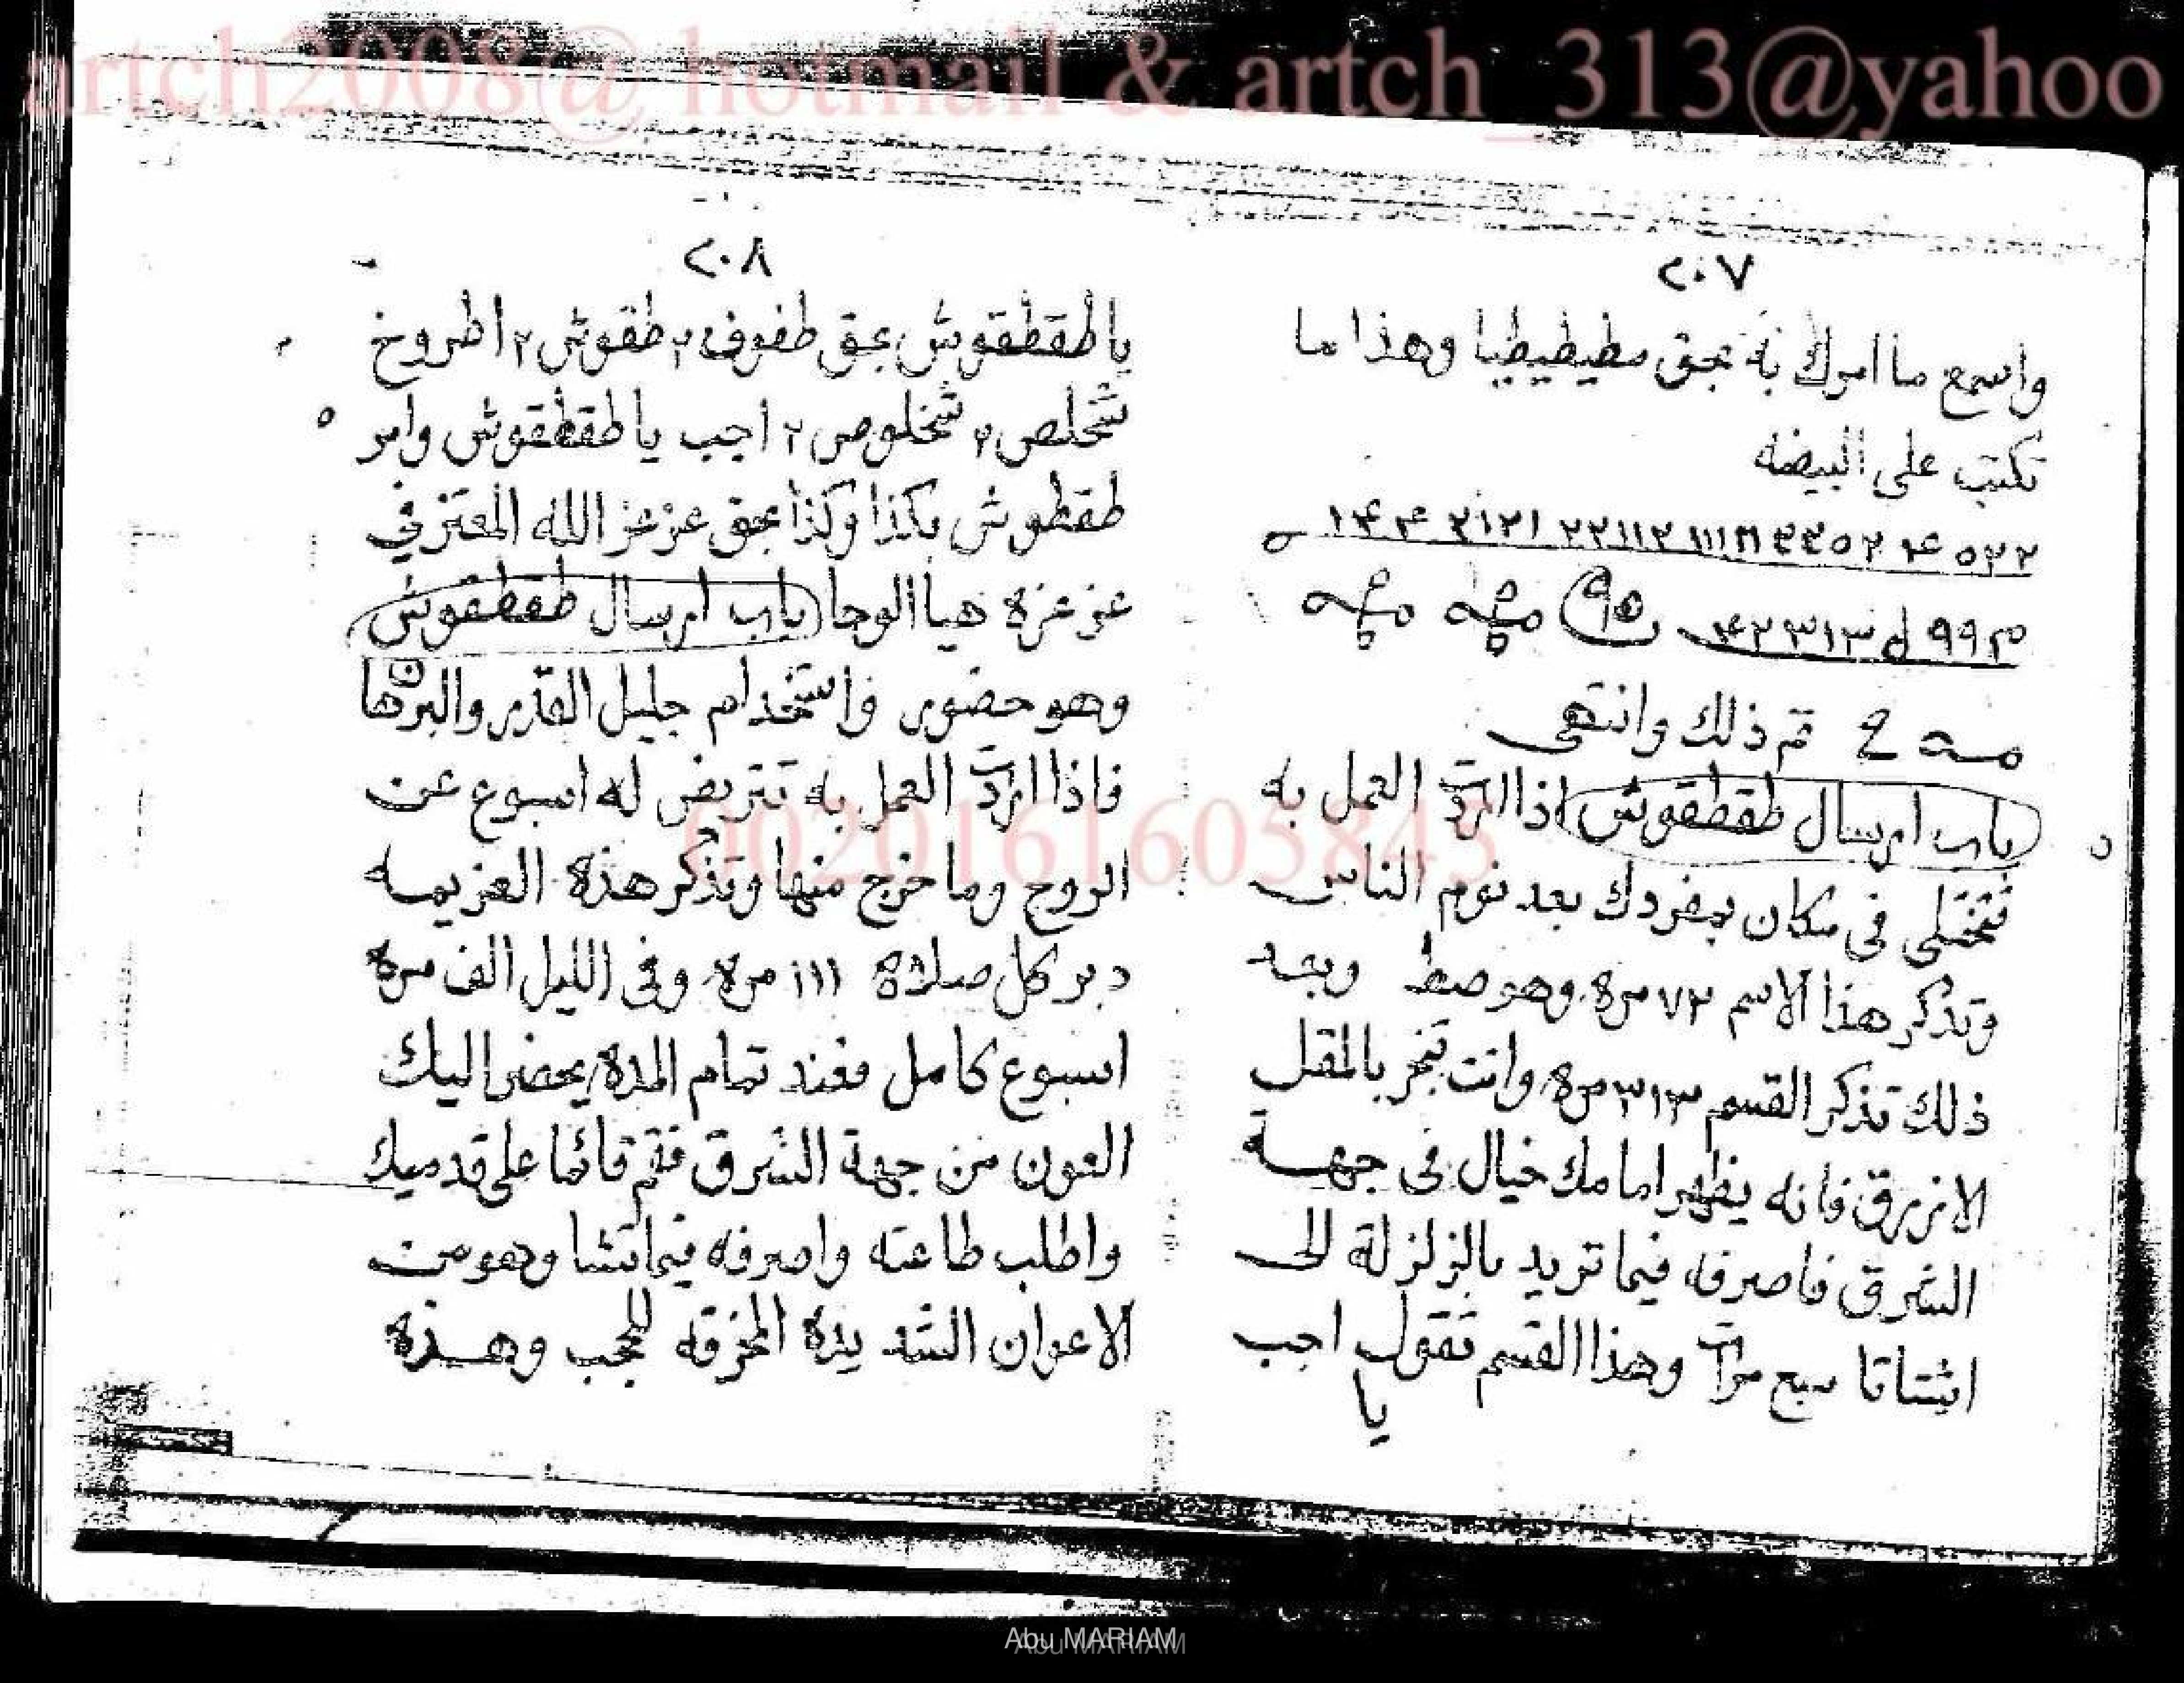 artch2008@ hotmail & artch_313@yahoo
٢٠٧
واسمع ما امرك به بحق مطيطيطيا وهذا ما
تكتب على البيضه
تم ذلك وانتهى
باب ارسال طقطقوش اذا اردت العمل به
تختلى فى مكان بمفردك بعد نوم الناس
وتذكر هذا الاسم ٧٢ مره وهو صط وبعد
ذلك تذكر القسم ٣١٣ مره وانت تبخر بالمقل
الازرق فانه يظهر امامك خيال فى جهة
الشرق فاصرفه فيما تريد بالزلزلة الى
اشتاتا سبع مرات وهذا القسم تقول اجب
يا
٢٠٨
يا طقطقوش بحق طفوف ٢ طقوش ٢ اطروخ
شخلص ٢ شخلوص ٢ اجب يا طقطقوش وامر
طقطوش بكذا وكذا بحق عز عز الله المعتز في
عز عزه هيا الوحا باب ارسال طقطقوش
وهو حضور واستخدام جليل القدر والبرهان
فاذا اردت العمل به تتريض له اسبوع عن
الروح وما خرج منها وتذكر هذه العزيمه
دبر كل صلاة ١١١ مره وفى الليل الف مره
اسبوع كامل فعند تمام المدة يحضر اليك
العون من جهة الشرق فقم قائما على قدميك
واطلب طاعته واصرفه فيما تشا وهو من
الاعوان الشديدة المخرقه للحجب وهذه
00201161605843
Abu MARIAM